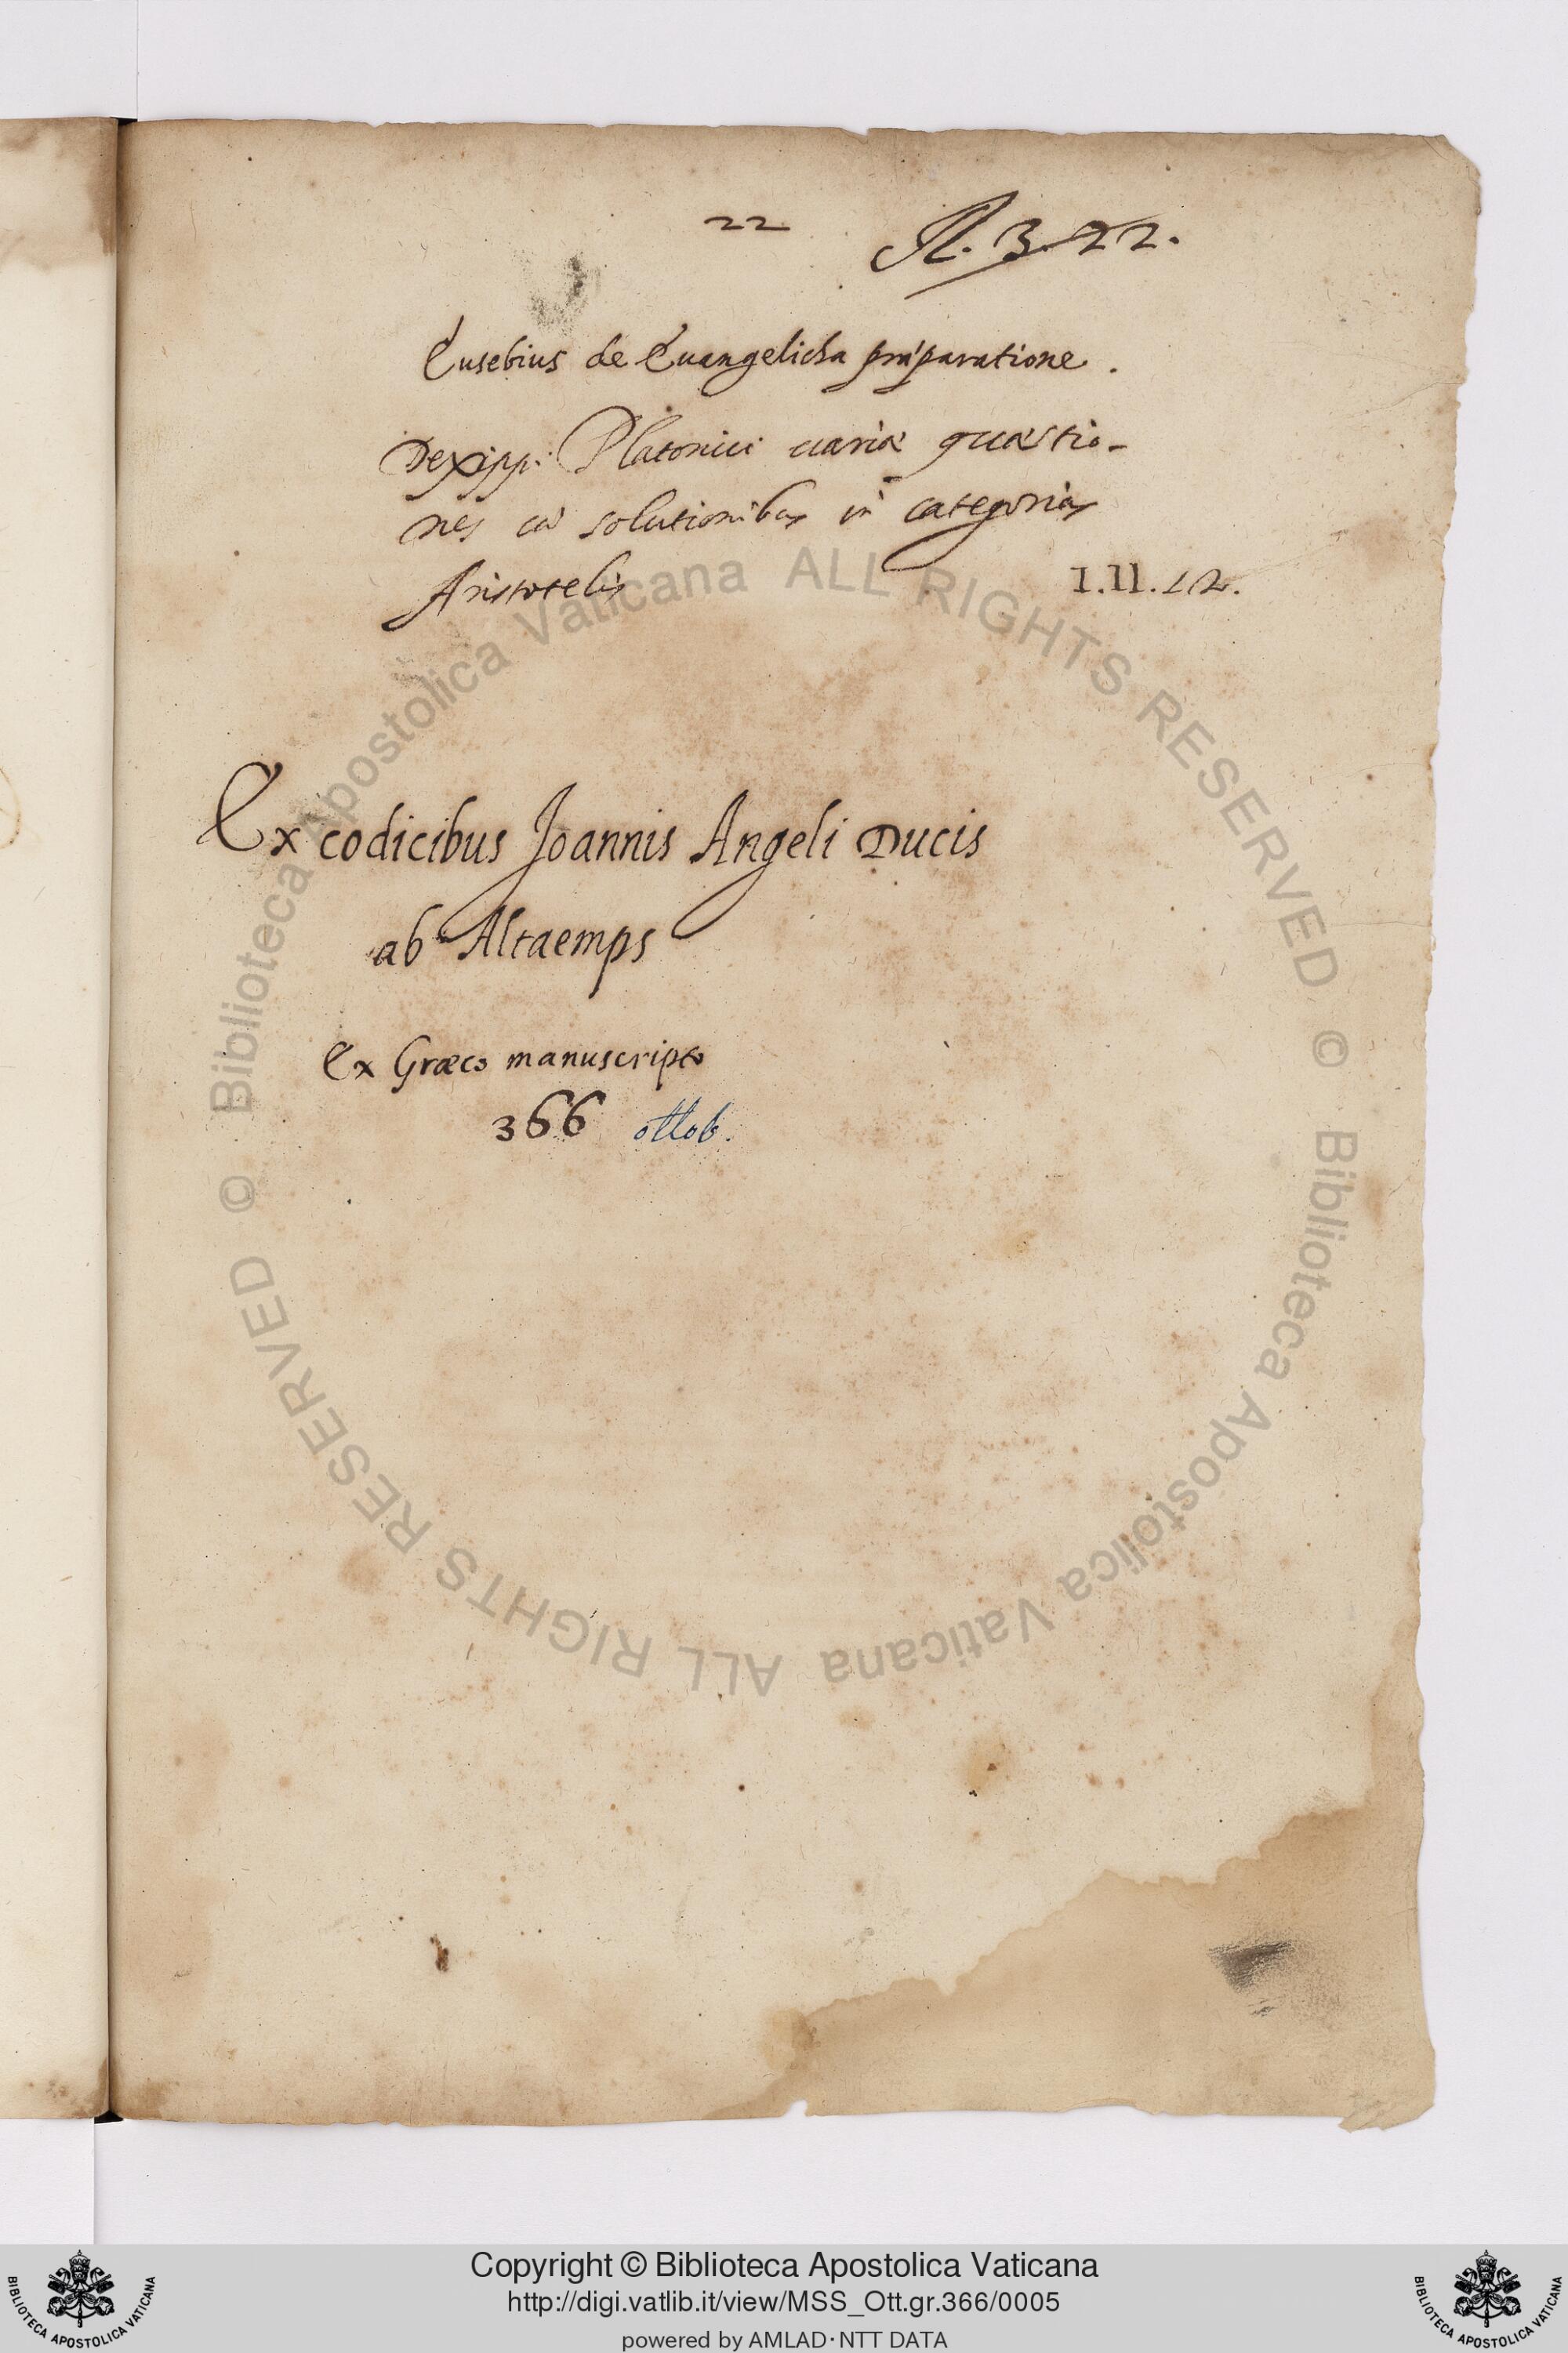 22
N. 3.22.
Eusebius de Euangelicha præparatione.
Dexippi Platonici uariæ quæstio-
nes cū solutionibus in categorias
Aristotelis
I.II.22.
Ex codicibus Joannis Angeli Ducis
ab Altaemps
Ex Græco manuscripto
366 ottob.
© Biblioteca Apostolica Vaticana ALL RIGHTS RESERVED
© Biblioteca Apostolica Vaticana ALL RIGHTS RESERVED
BIBLIOTECA APOSTOLICA VATICANA
Copyright © Biblioteca Apostolica Vaticana
http://digi.vatlib.it/view/MSS_Ott.gr.366/0005
powered by AMLAD·NTT DATA
BIBLIOTECA APOSTOLICA VATICANA